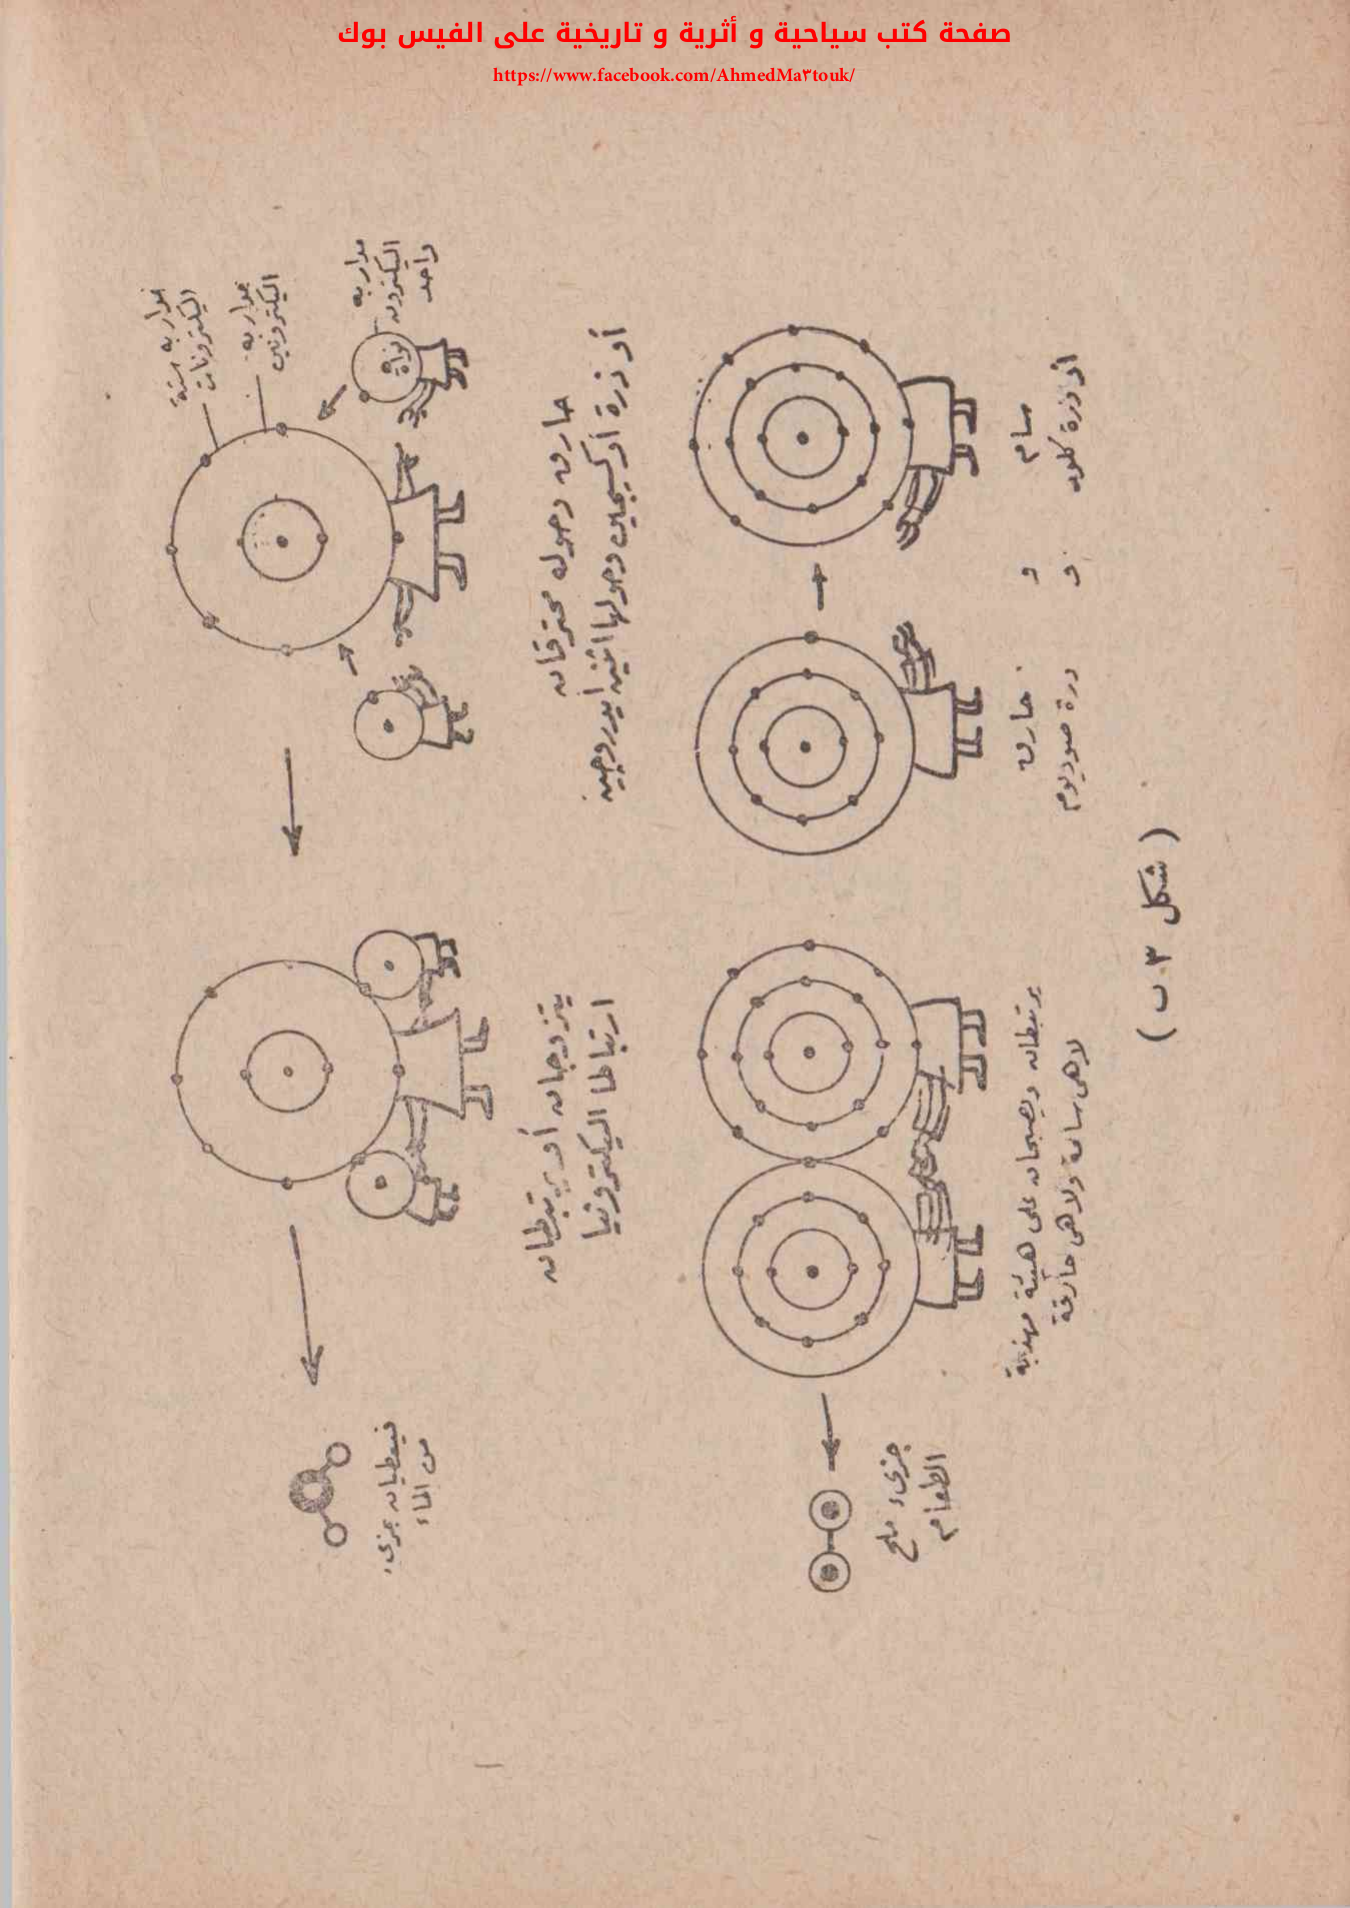 صفحة كتب سياحية و أثرية و تاريخية على الفيس بوك
https://www.facebook.com/AhmedMa٣touk/
مدار به ستة
اليكترونات
مدار به
اليكترونين
مدار به
اليكترون
واحد
نواة
حارق وحوله محترقان
أو ذرة أوكسيجين وحولها اثنين أيدروجين
يتزوجان أو يرتبطان
ارتباطا اليكترونيا
فيعطيان جزىء
من الماء
سام
أو ذرة كلور
و
و
حارق
ذرة صوديوم
يرتبطان ويصبحان على هيئة مهذبة
لاهى سامة ولاهى حارقة
جزىء ملح
الطعام
( شكل ٣ ب )